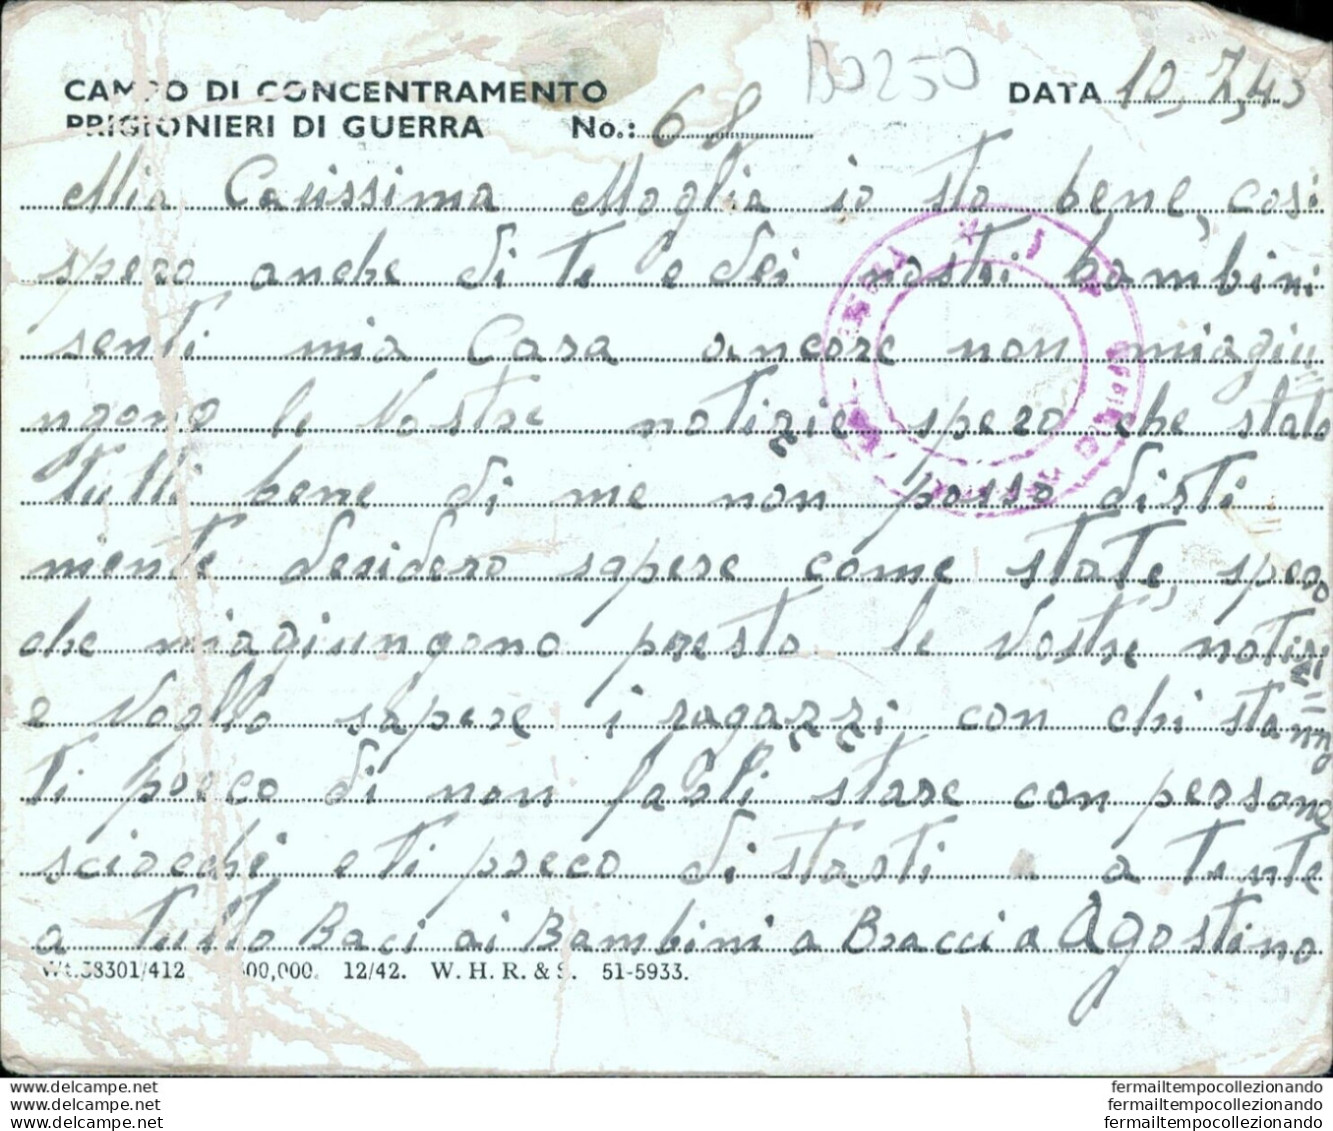 B0250
CAMPO DI CONCENTRAMENTO DATA 10,7,43
PRIGIONIERI DI GUERRA No.: 68
Mia Carissima Moglia io sto bene, cosi
spero anche di te e dei nostri bambini
senti mia Cara ancore non miagiu=
ngono le Vostre notizie spero che stato
tutti bene di me non posso disti
mente desidero sapere come state, spero
che miagiungono presto le Vostre notizi
e Voglio sapere i ragazzi con chi stanno
ti preco di non farli stare con persone
sciocchi, e ti preco di starti a tente
a tutto Baci ai Bambini a Bracci a Agostino
Wt.38301/412 500,000. 12/42. W. H. R. & S. 51-5933.
www.delcampe.net
www.delcampe.net
www.delcampe.net
fermailtempocollezionando
fermailtempocollezionando
fermailtempocollezionando